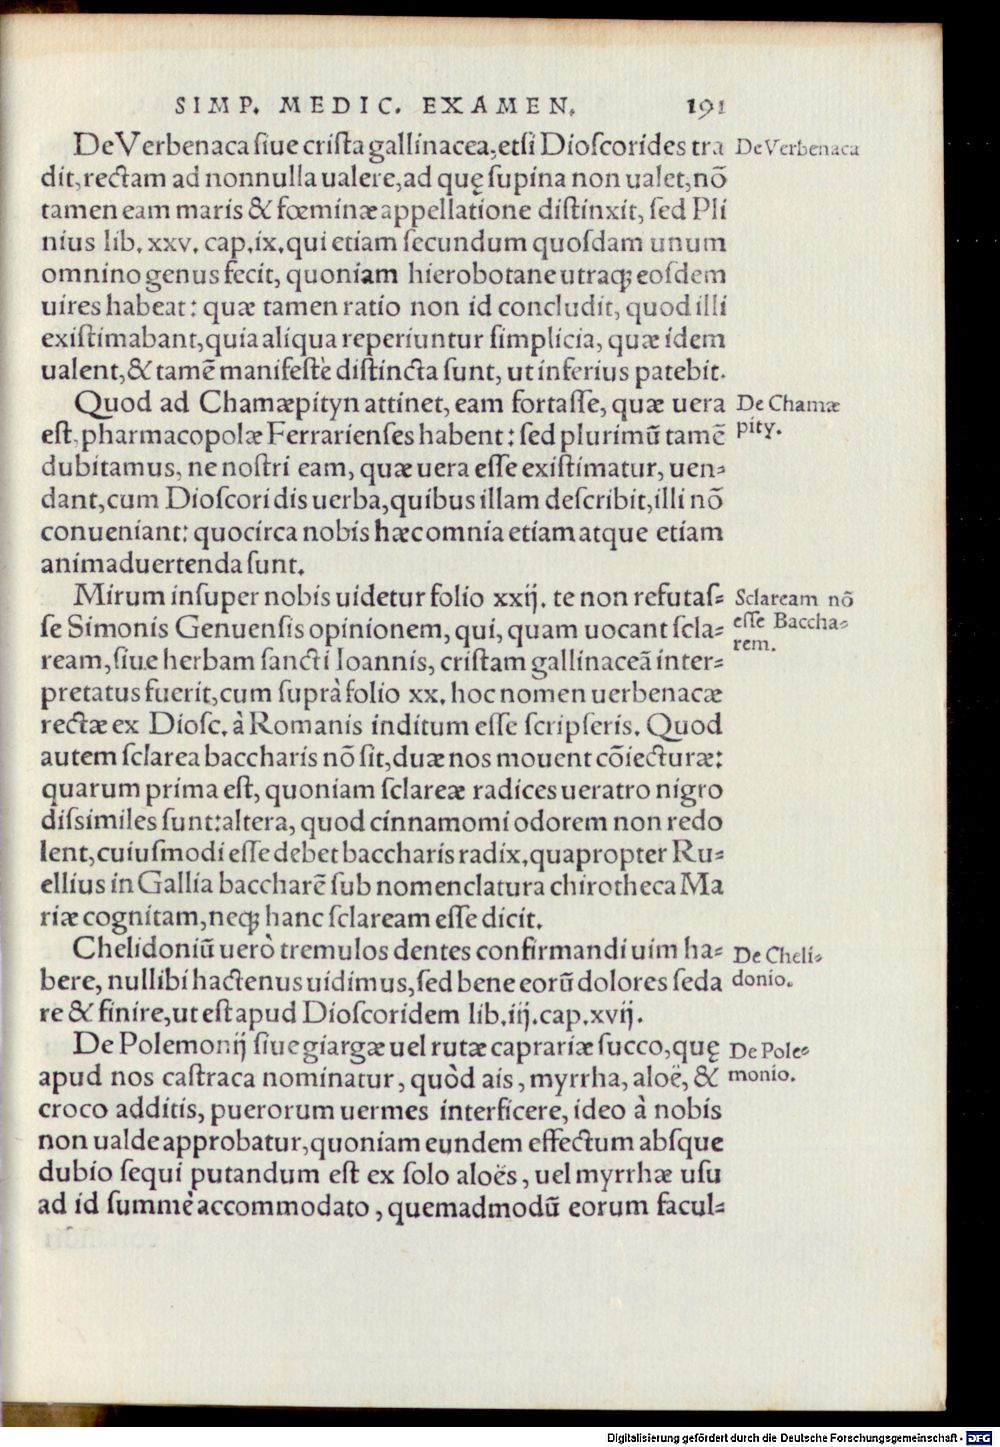 SIMP. MEDIC. EXAMEN. 191
De Verbenaca siue crista gallinacea, etsi Dioscorides tra
De Verbenaca
dit, rectam ad nonnulla ualere, ad quę supina non ualet, nō
tamen eam maris & fœminæ appellatione distinxit, sed Pli
nius lib. xxv. cap. ix. qui etiam secundum quosdam unum
omnino genus fecit, quoniam hierobotane utraq; eosdem
uires habeat: quæ tamen ratio non id concludit, quod illi
existimabant, quia aliqua reperiuntur simplicia, quæ idem
ualent, & tamē manifestè distincta sunt, ut inferius patebit.
Quod ad Chamæpityn attinet, eam fortasse, quæ uera
De Chamæ
est, pharmacopolæ Ferrarienses habent: sed plurimū tamē
pity.
dubitamus, ne nostri eam, quæ uera esse existimatur, uen=
dant, cum Dioscoridis uerba, quibus illam describit, illi nō
conueniant: quocirca nobis hæc omnia etiam atque etiam
animaduertenda sunt.
Mirum insuper nobis uidetur folio xxij. te non refutas=
Sclaream nō
se Simonis Genuensis opinionem, qui, quam uocant scla=
esse Baccha=
ream, siue herbam sancti Ioannis, cristam gallinaceā inter=
rem.
pretatus fuerit, cum suprà folio xx. hoc nomen uerbenacæ
rectæ ex Diosc. à Romanis inditum esse scripseris. Quod
autem sclarea baccharis nō sit, duæ nos mouent cōiecturæ:
quarum prima est, quoniam sclareæ radices ueratro nigro
dissimiles sunt: altera, quod cinnamomi odorem non redo
lent, cuiusmodi esse debet baccharis radix, quapropter Ru=
ellius in Gallia baccharē sub nomenclatura chirotheca Ma
riæ cognitam, neq; hanc sclaream esse dicit.
Chelidoniū uerò tremulos dentes confirmandi uim ha=
De Cheli=
bere, nullibi hactenus uidimus, sed bene eorū dolores seda
donio.
re & finire, ut est apud Dioscoridem lib. iij. cap. xvij.
De Polemonij siue giargæ uel rutæ caprariæ succo, quę
De Pole=
apud nos castraca nominatur, quòd ais, myrrha, aloë, &
monio.
croco additis, puerorum uermes interficere, ideo à nobis
non ualde approbatur, quoniam eundem effectum absque
dubio sequi putandum est ex solo aloës, uel myrrhæ usu
ad id summè accommodato, quemadmodū eorum facul=
Digitalisierung gefördert durch die Deutsche Forschungsgemeinschaft - DFG